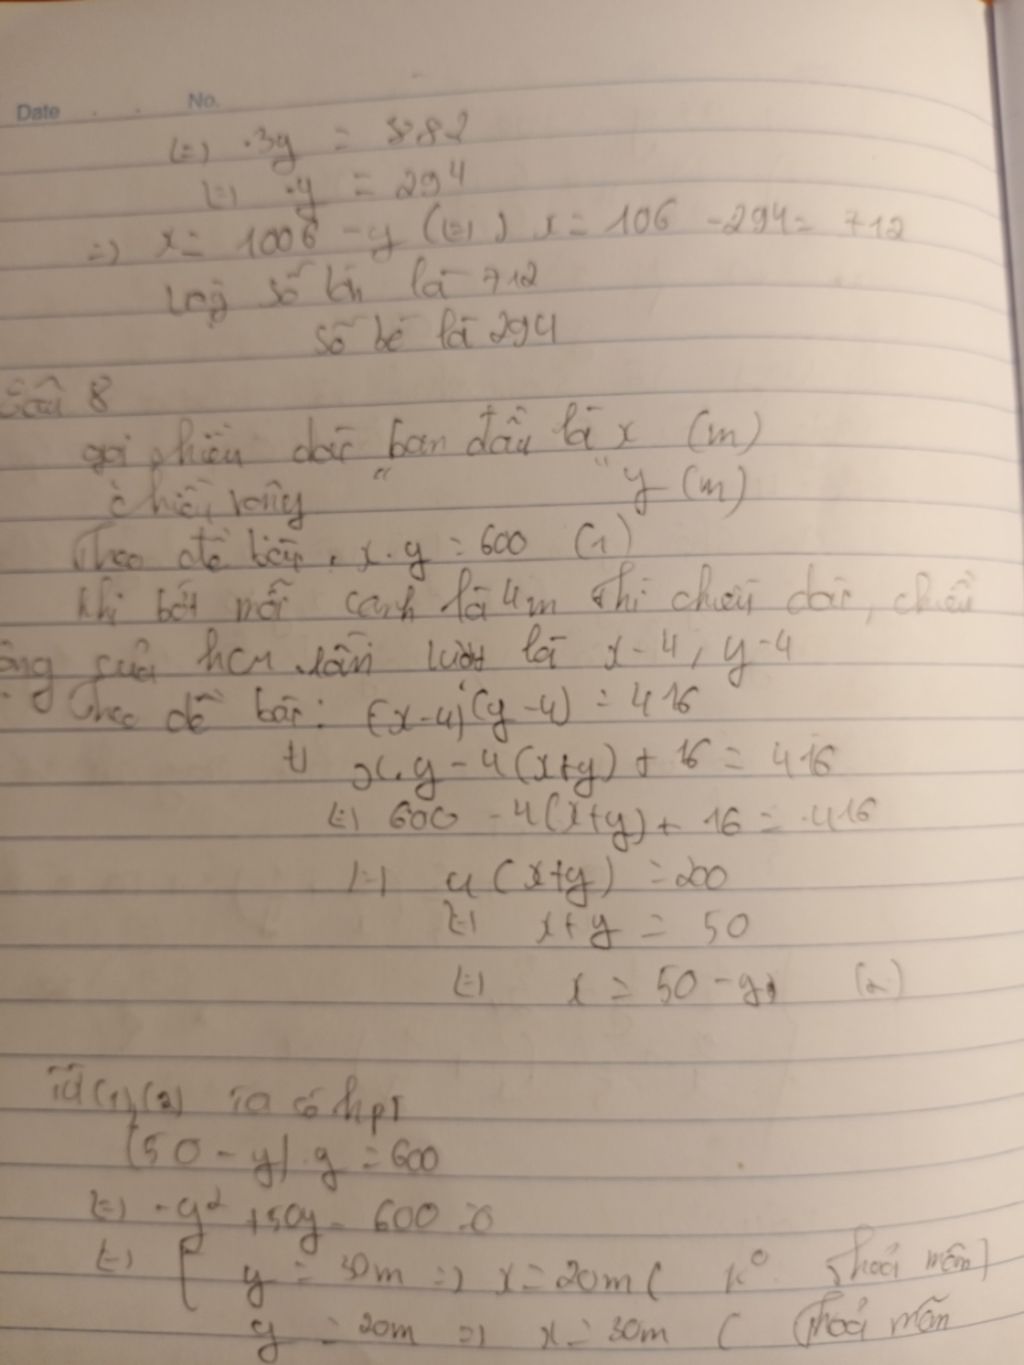 Date No.
(=) 3y = 882
(=) y = 294
=) x = 1006 - y (=) x = 106 - 294 = 712
số lớn là 712
số bé là 294
Câu 8
gọi chiều dài ban đầu là x (m)
chiều rộng " " y (m)
Theo đề bài, x.y = 600 (1)
Khi bớt mỗi cạnh là 4m thì chiều dài, chiều
rộng của hcn lần lượt là x-4, y-4
Theo đề bài: (x-4)(y-4) = 416
(=) x.y - 4(x+y) + 16 = 416
(=) 600 - 4(x+y) + 16 = 416
(=) 4(x+y) = 200
(=) x+y = 50
(=) x = 50 - y (2)
Từ (1),(2) ta có hpt
(50 - y).y = 600
(=) -y² + 50y - 600 = 0
(=) [ y = 30m =) x = 20m ( k⁰ thoả mãn)
y = 20m =) x = 30m ( thoả mãn